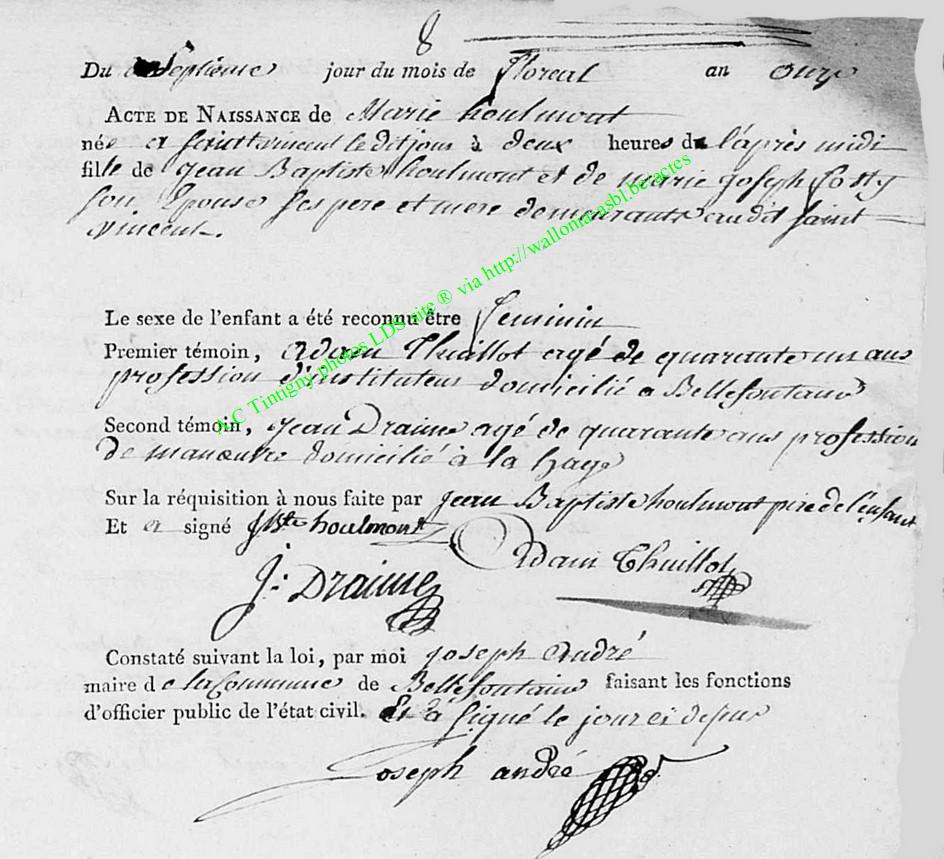 8
Du Septieme jour du mois de floreal an onze
ACTE DE NAISSANCE de Marie houlmont
née a saint vincent ledit jour à deux heures du l'après midi
fille de jean Baptiste houlmont et de marie joseph
son Epouse ses pere et mere demeurants audit saint
vincent.
Le sexe de l'enfant a été reconnu être feminin
Premier témoin, Adam Thuillot agé de quarante un ans
profession d'instituteur domicilié a Bellefontaine
Second témoin, jean Draime agé de quarante ans profession
de manœuvre domicilié à la haye
Sur la réquisition à nous faite par jean Baptiste houlmont pere de l'enfant
Et a signé JBte houlmont
Adam Thuillot
J: Draime
Constaté suivant la loi, par moi joseph André
maire de la Commune de Bellefontaine faisant les fonctions
d'officier public de l'état civil. Et a signé le jour ci dessus
joseph andré
A.C Tintigny photos LDS site ® via http://wallonia.asbl.be/actes